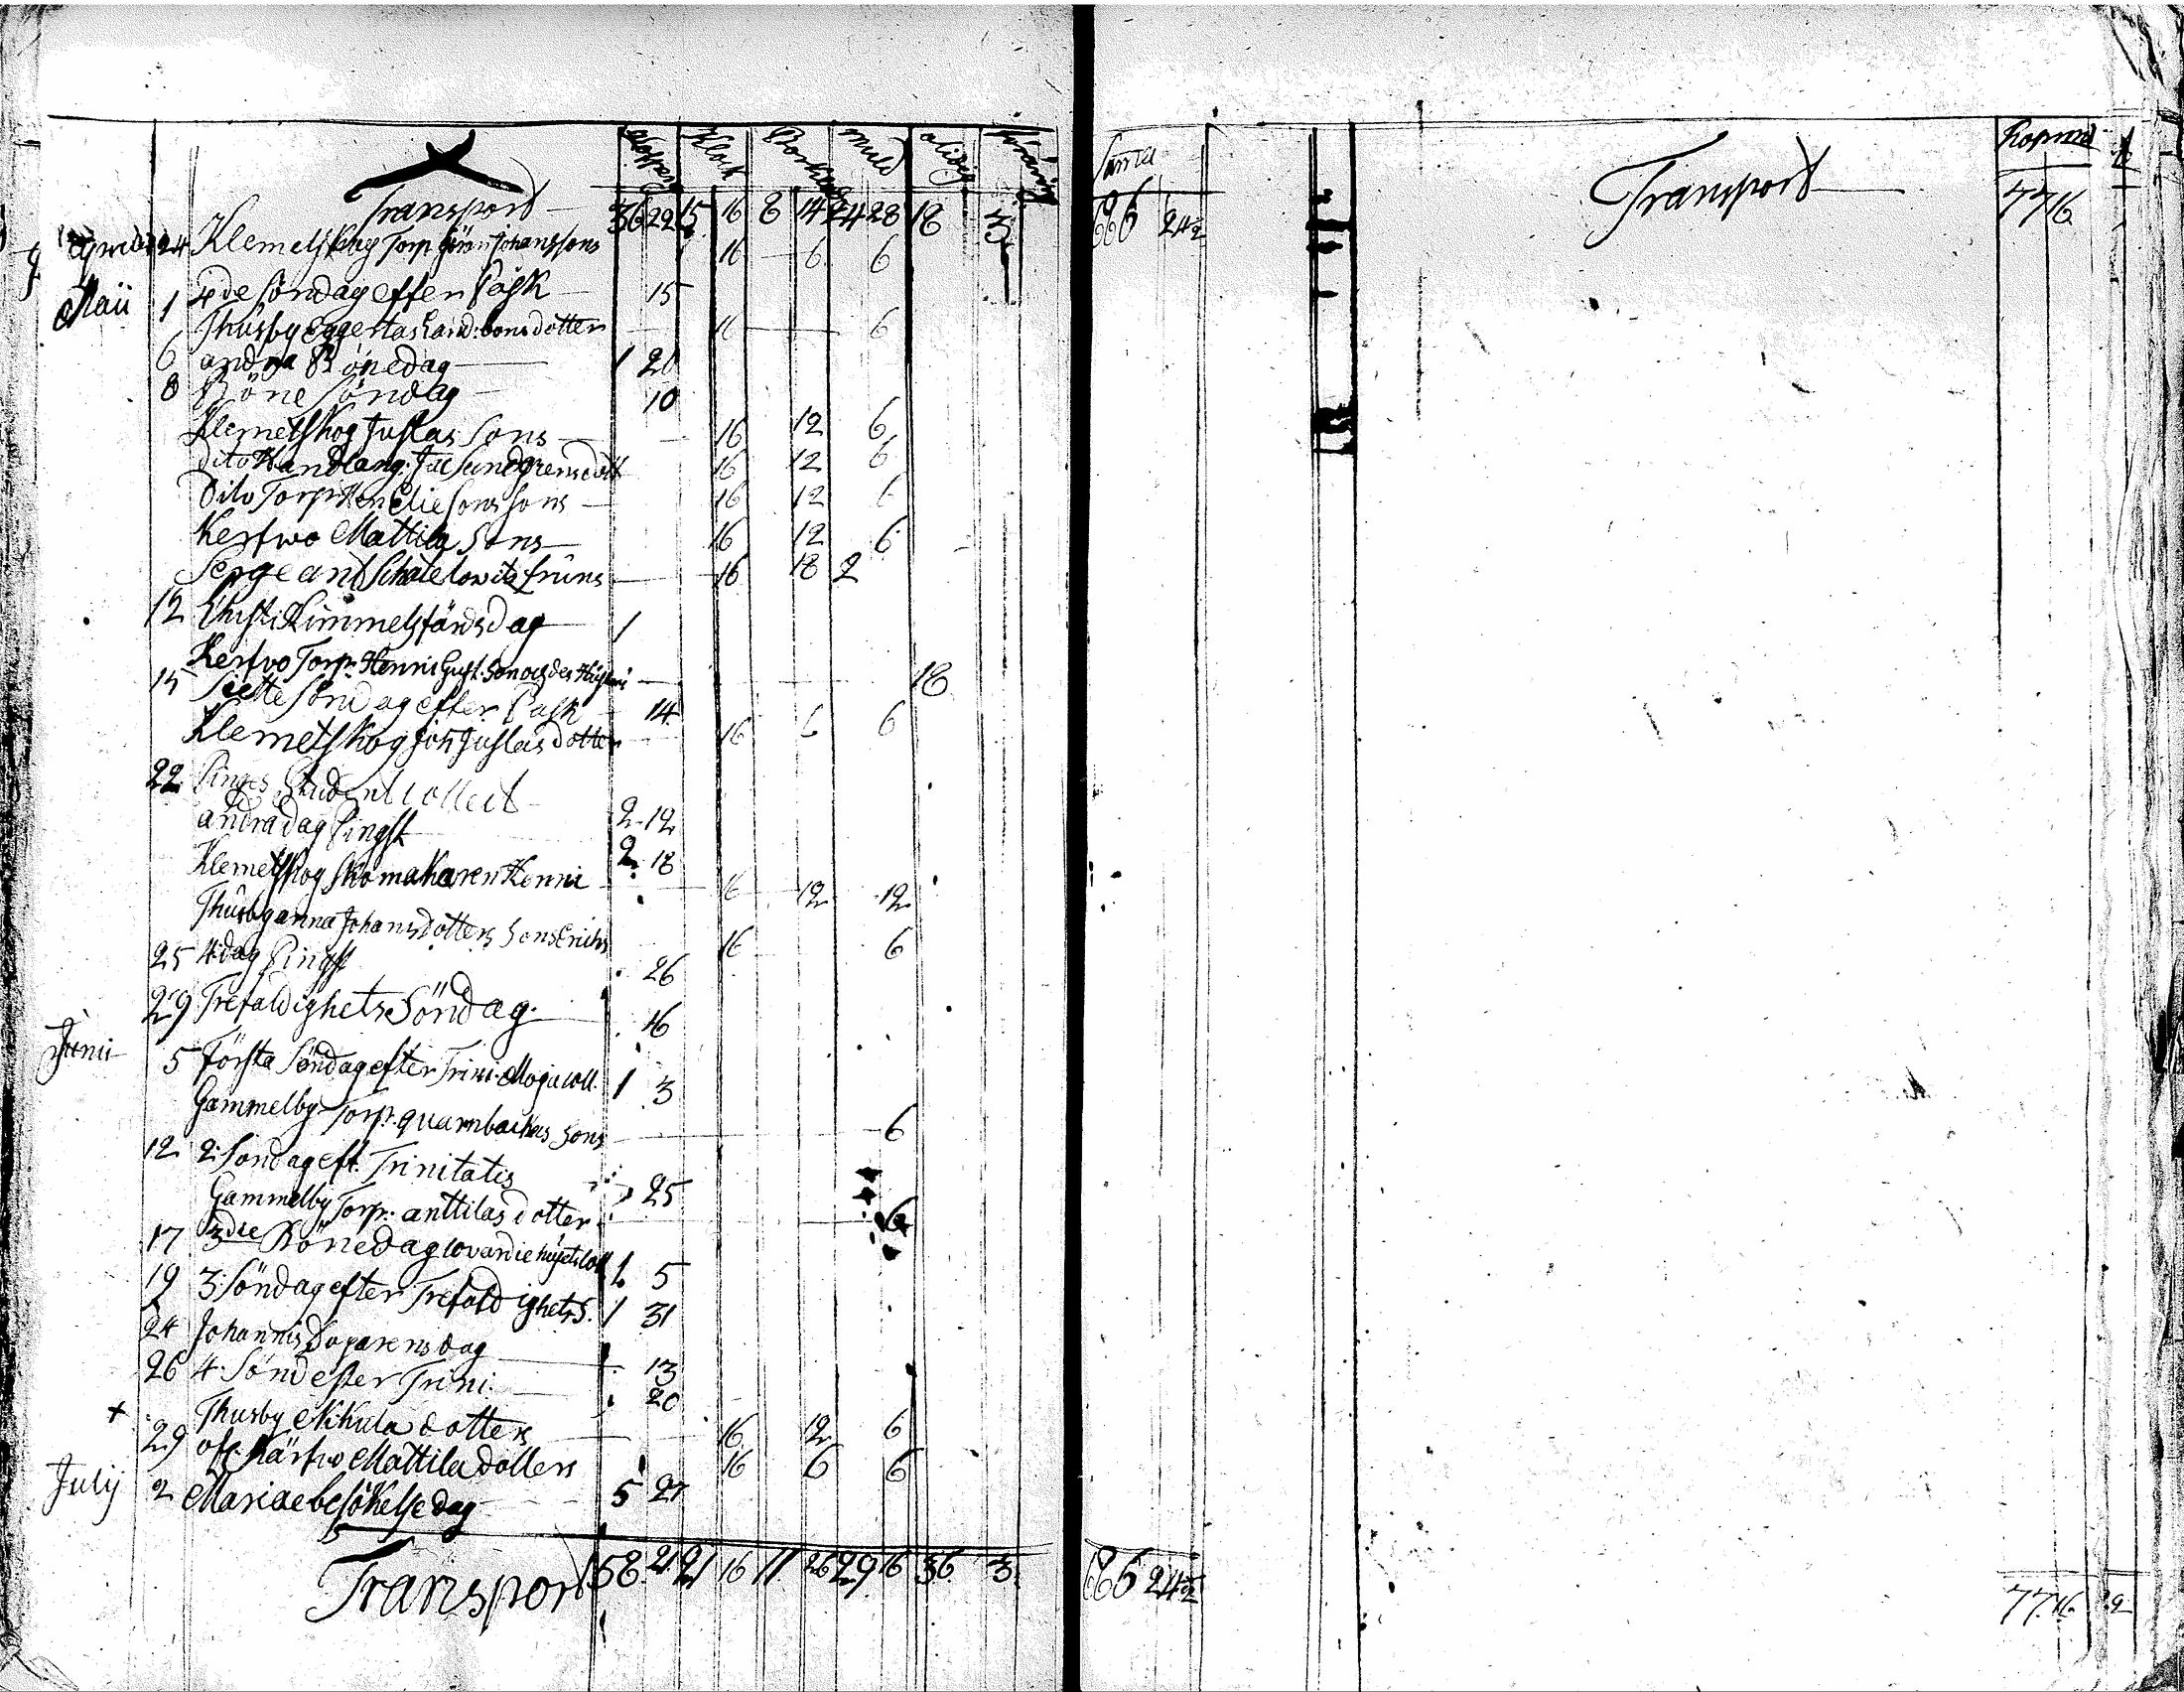 Klock
muld
Transport 36 22 15 16 8 14 24 28 18 3
24 Klemetskog Torp Johanssons 16 6 6
Maii 1 4de Söndag efter Påsk 15
Thusby dotter 16 6
6 andra Bönedag 1 20
8 Böne Söndag 10
Klemetskog Juslas Sons 16 12 6
dito Handlang: Sundgrens dott 16 12 6
Dito Torp: Eliesons Sons 16 12 6
Kerfwo Mattila Sons 16 12 6
Sergeant fruns 16 18 2
12 Christi Himmelsfärds dag 1
Kerfvo Torp: Henric Gust: Son och des 18
15 Siette Söndag efter Påsk 14
Klemetskog Juslas dotter 16 6 6
22 Pinges Student Collect 2 12
andra dag Pingst 2 18
Klemetskog Skomakaren Henric 16 12 12
Thusby anna Johansdotters Sons 16 6
25 4 dag Pingst 26
29 Trefaldighets Söndag 16
Junii 5 Första Söndag efter Trini: Coll. 1 3
Gammelby Torp: quarnbackas Sons 6
12 2: Söndag eft. Trinitatis 25
Gammelby Torp: anttilas dotter 6
17 3die Bönedag 1 5
19 3: Söndag efter Trefaldighets S. 1 31
24 Johannis Döparens dag 13
26 4: Sönd efter Trini: 20
Thusby dotters 16 12 6
29 Kärfwo Mattila dotters 16 6 6
Julij 2 Mariae besökelse dag 5 27
Transport 58 21 21 16 11 26 29 6 36 3
Summa
86 24½
86 24½
Transport 776
776 2